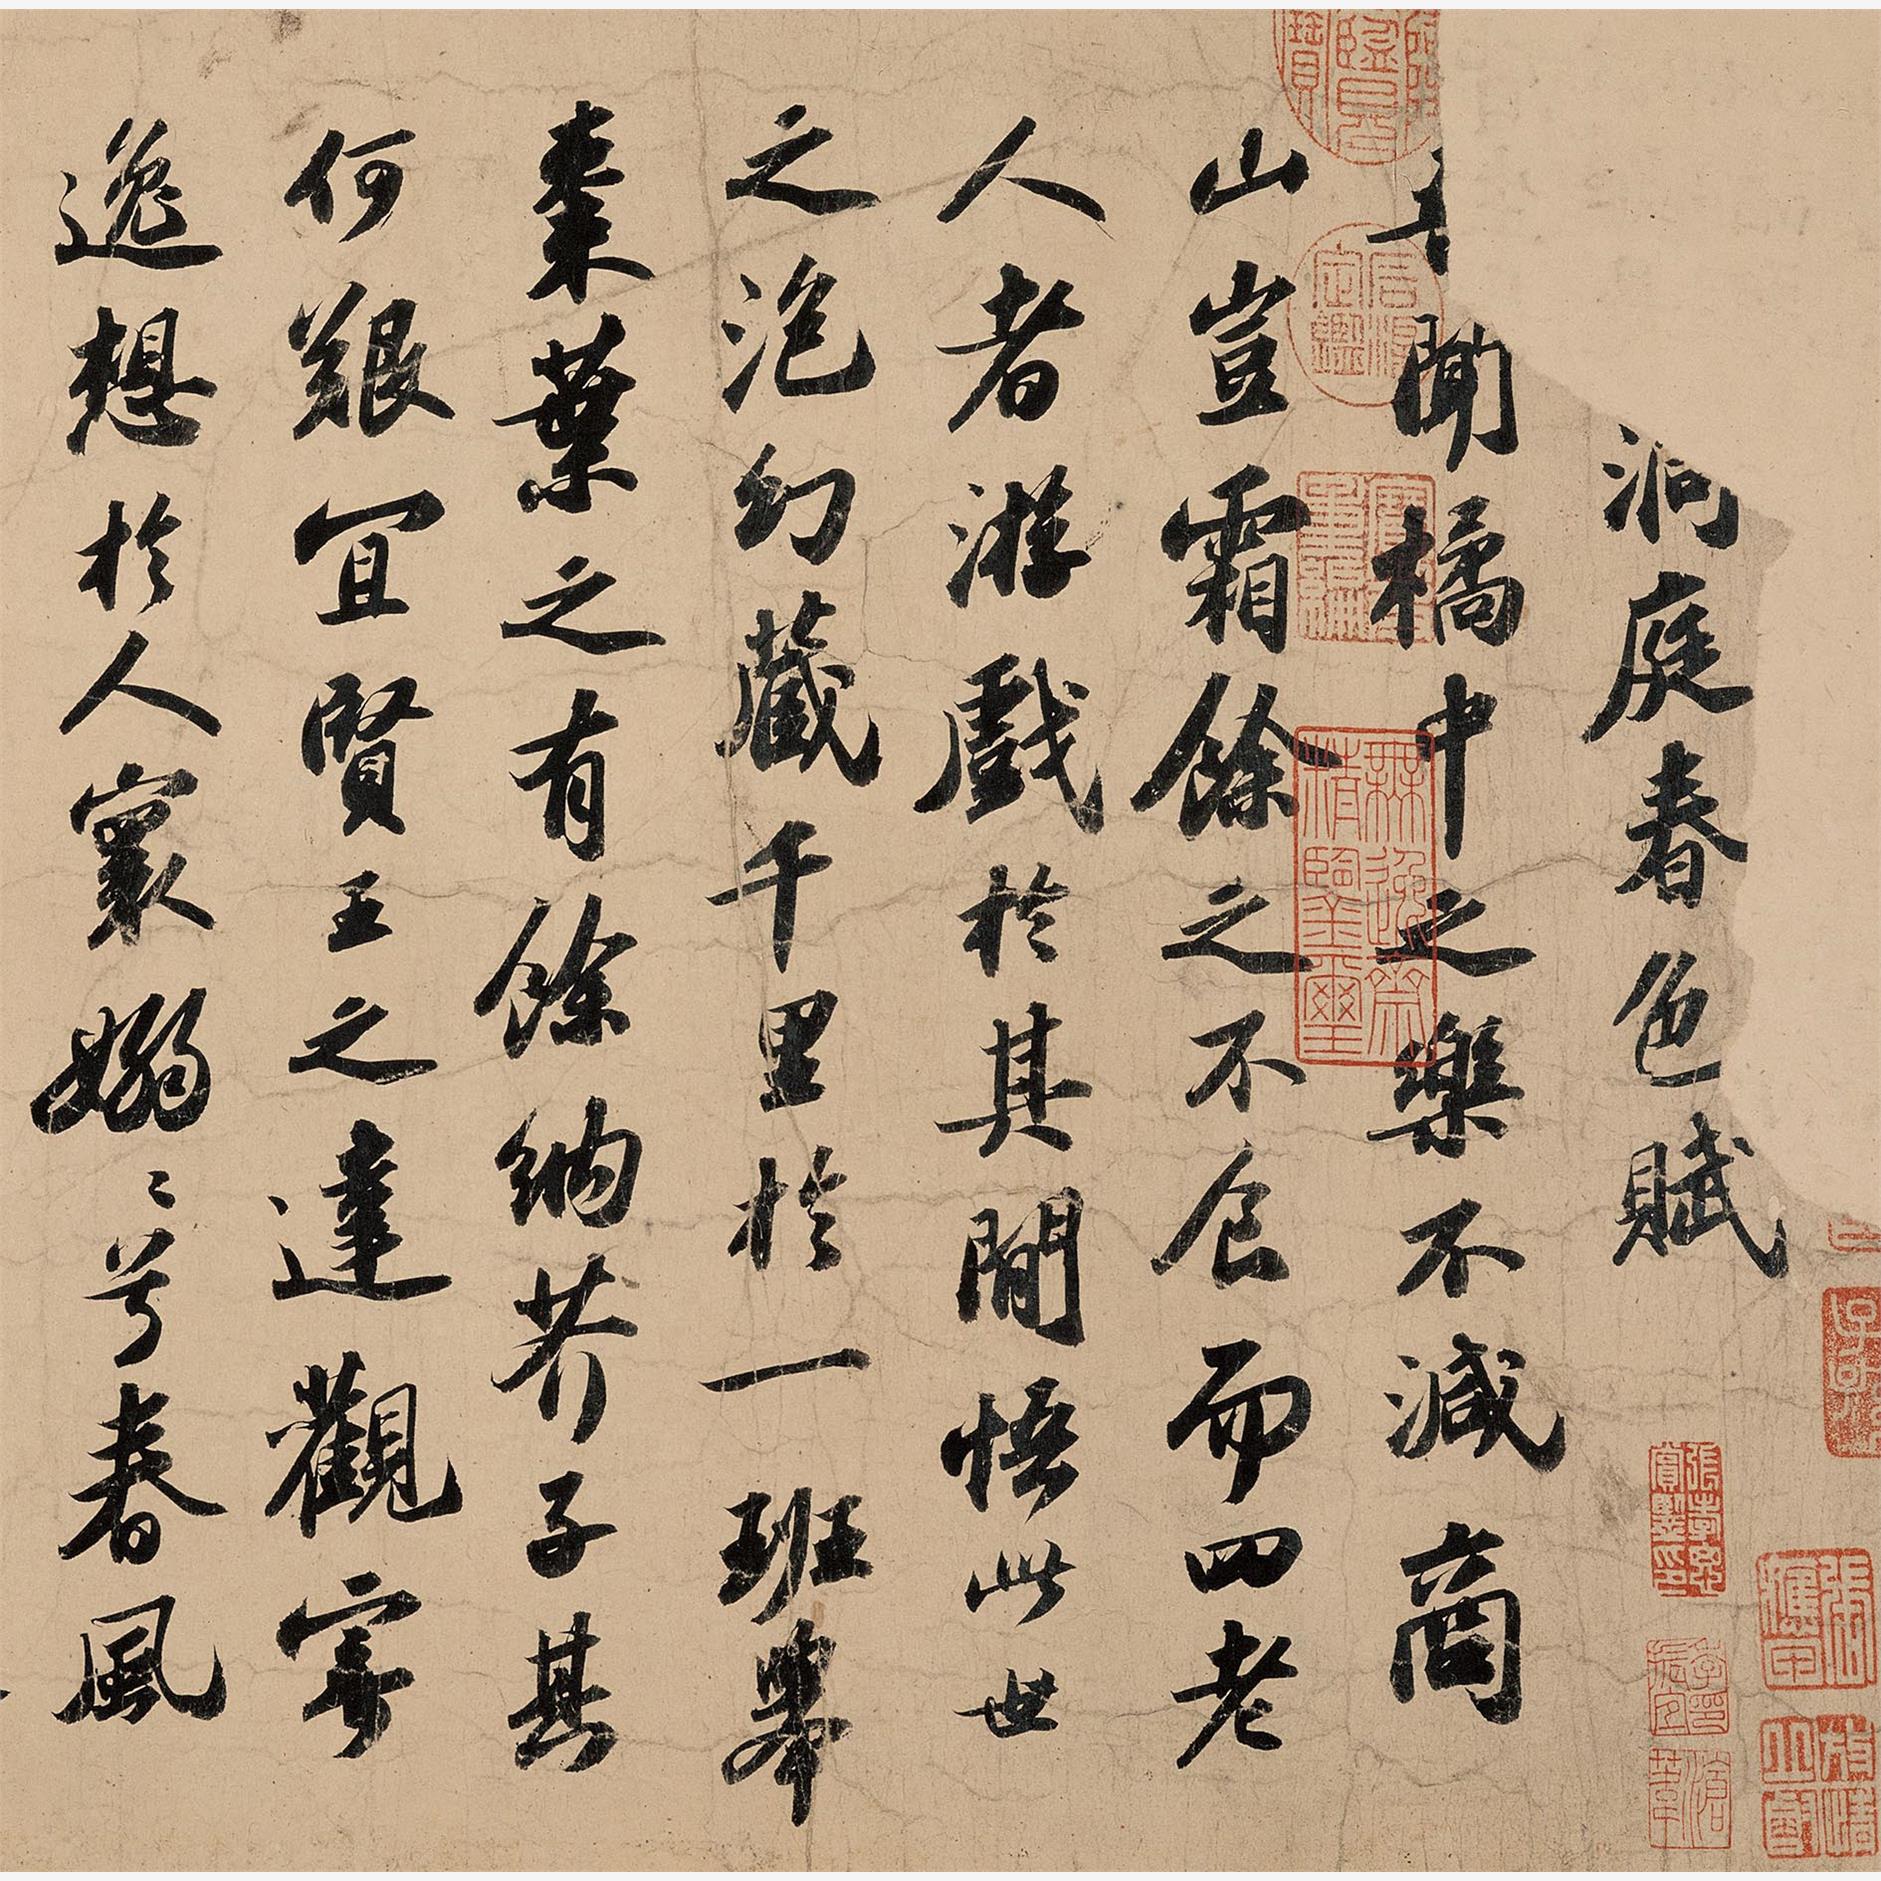 洞庭春色賦
吾聞橘中之樂不減商
山豈霜餘之不食而四老
人者游戲於其間悟此世
之泡幻藏千里於一班舉
棗葉之有餘納芥子其
何艱宜賢王之達觀寄
逸想於人寰嫋〻兮春風